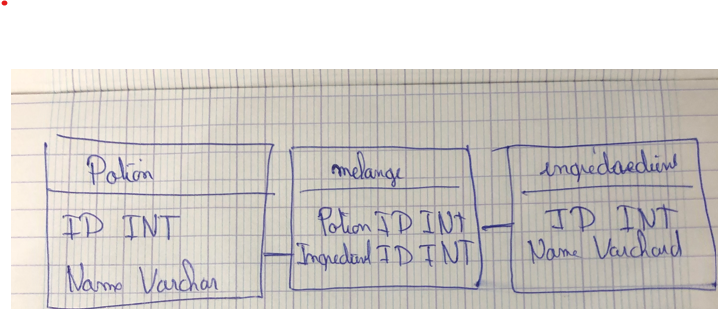 Potion
ID INT
Name Varchar
melange
Potion ID INT
Ingredient ID INT
ID INT
Name Varchard